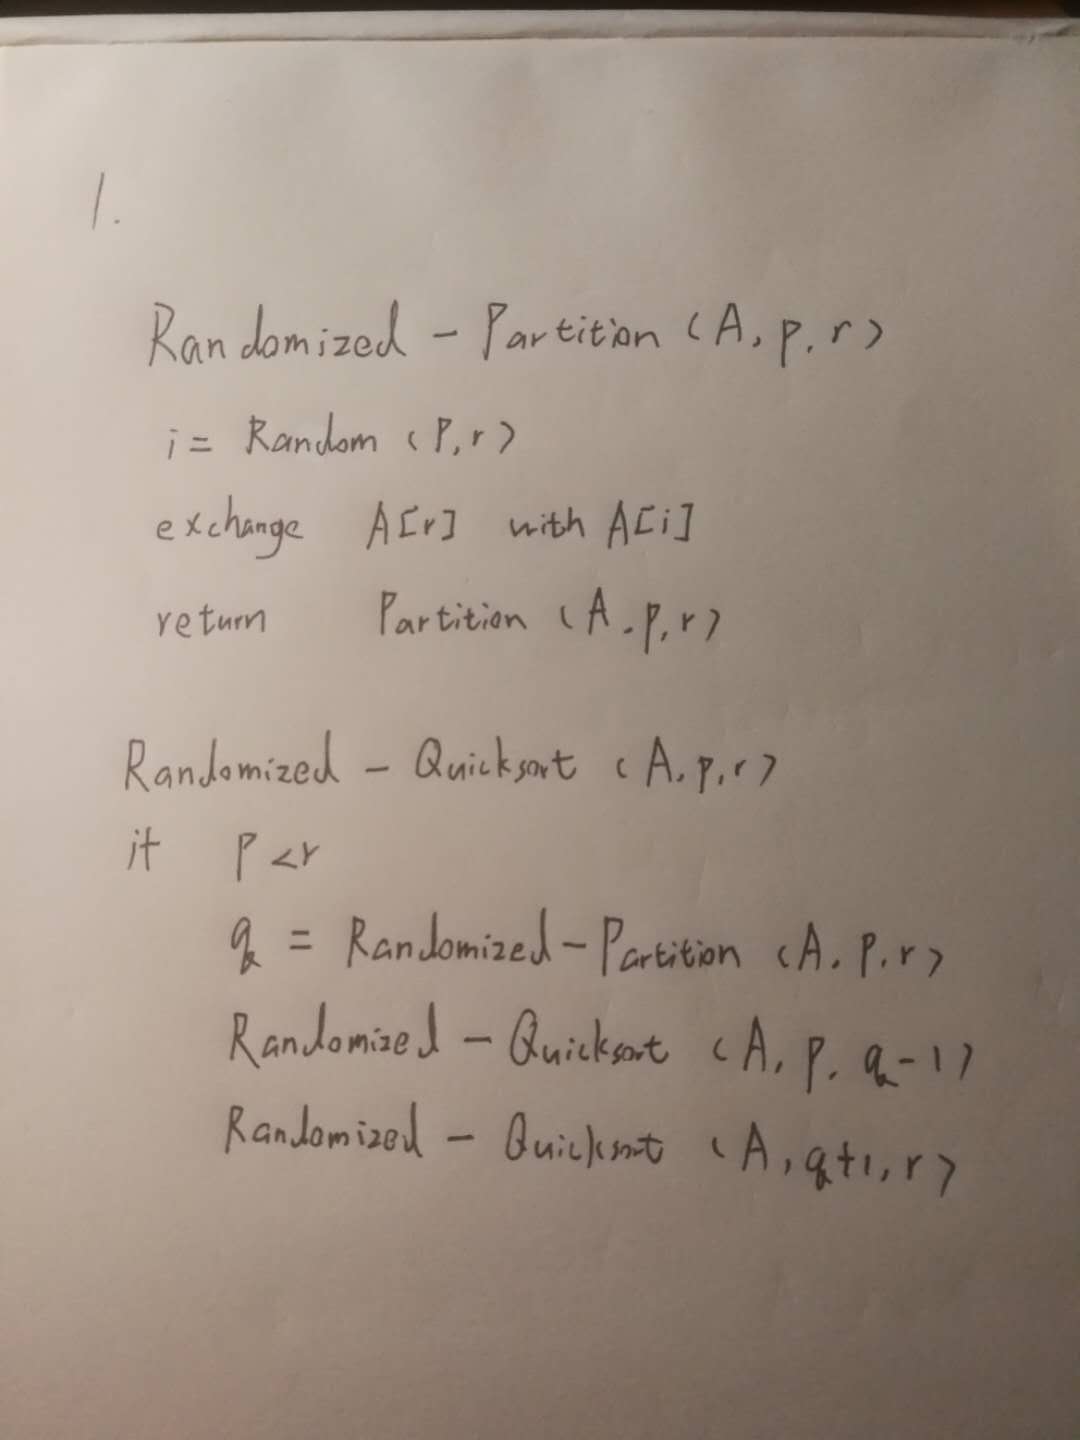 1.
Randomized - Partition (A, p, r)
i = Random (P, r)
exchange A[r] with A[i]
return Partition (A, p, r)
Randomized - Quicksort (A, p, r)
if P < r
q = Randomized - Partition (A, P, r)
Randomized - Quicksort (A, p, q-1)
Randomized - Quicksort (A, q+1, r)